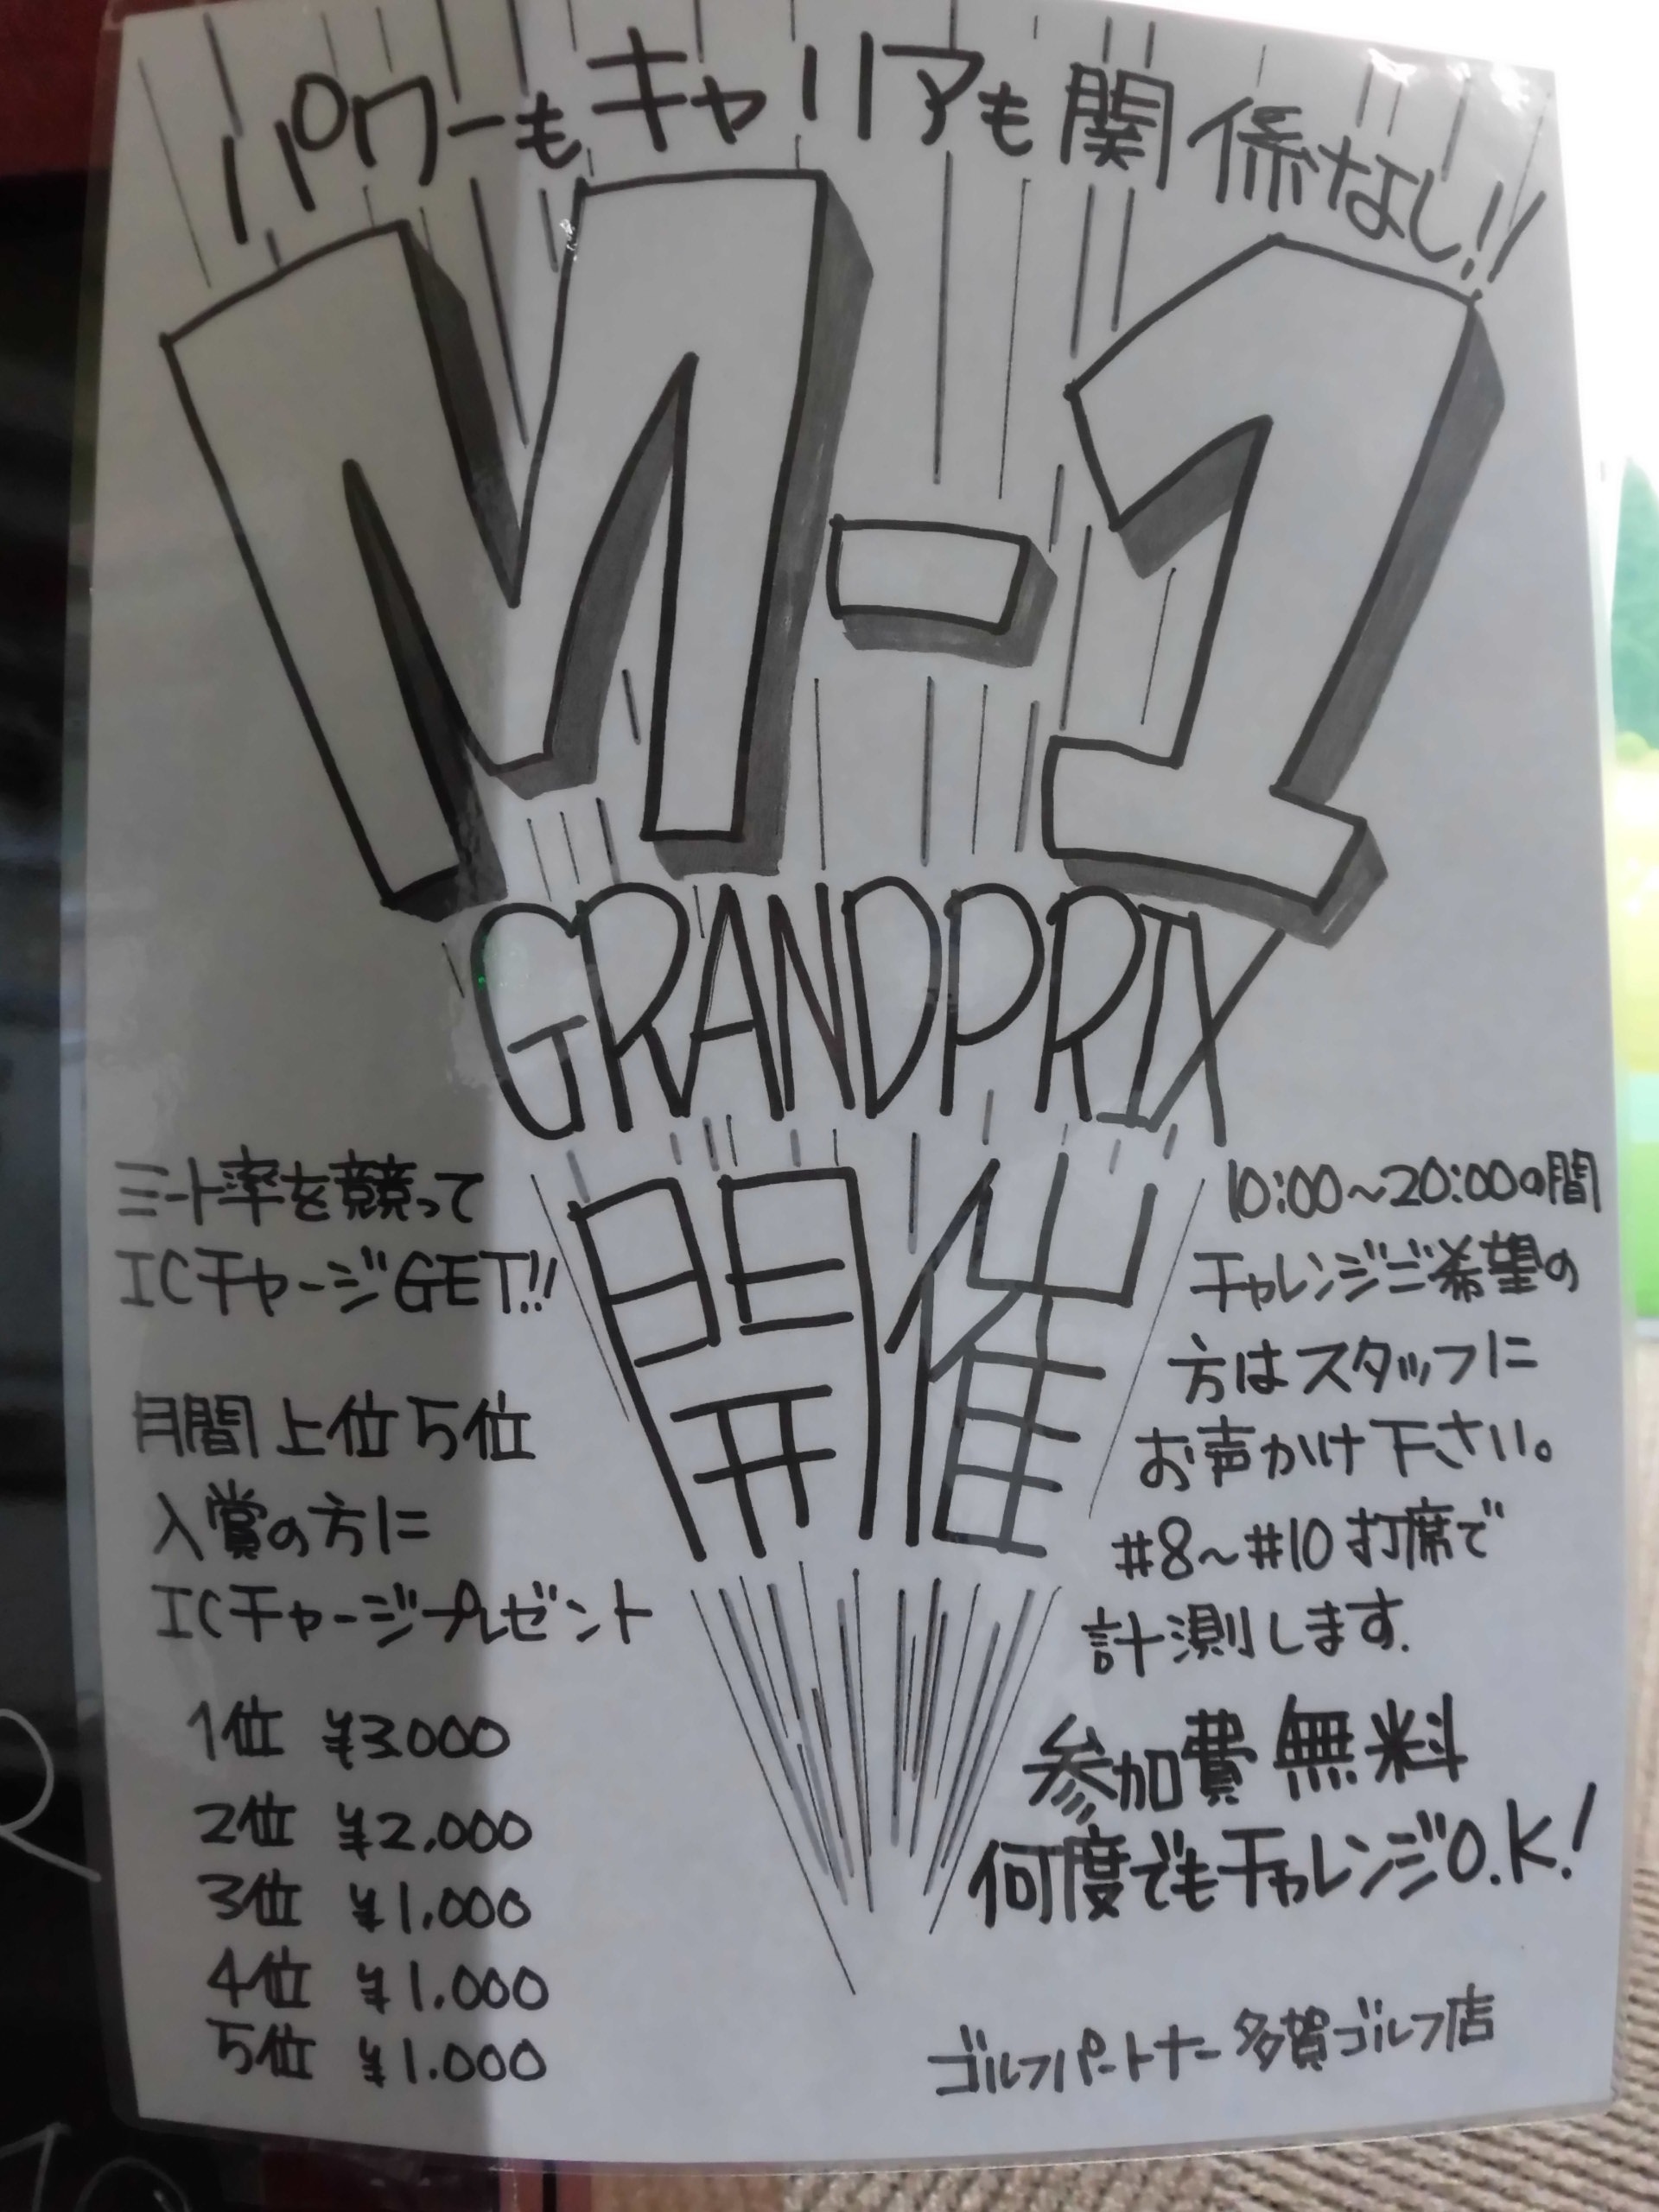 パワーもキャリアも関係なし!!
M-1
GRANDPRIX
開催
ミート率を競って
ICチャージGET!!
月間上位5位
入賞の方に
ICチャージプレゼント
1位 ¥3.000
2位 ¥2,000
3位 ¥1,000
4位 ¥1.000
5位 ¥1.000
10:00〜20:00の間
チャレンジご希望の
方はスタッフに
お声かけ下さい。
#8〜#10打席で
計測します.
参加費無料
何度でもチャレンジO.K!
ゴルフパートナー多賀ゴルフ店